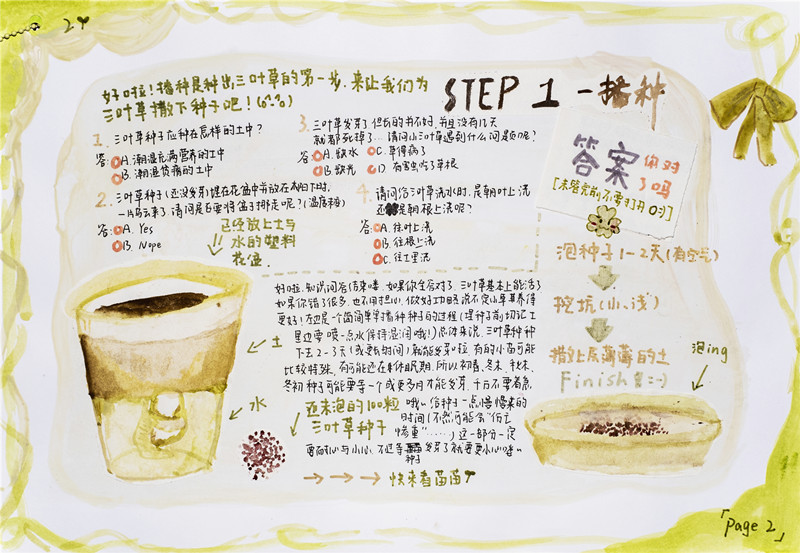 好啦！播种是种出三叶草的第一步，来让我们为
三叶草撒下种子吧！(o^-^o)
STEP 1 - 播种
1. 三叶草种子应种在怎样的土中？
答：A 潮湿充满营养的土中
B 潮湿贫瘠的土中
2. 三叶草种子(还没发芽)健在花盆中并放在太阳下时，
一片乌云来了，请问是否要将盆子挪走呢？(温度棒)
答：A. Yes
B. Nope
3. 三叶草发芽了但长的并不好，并且没有几天
就都死掉了……请问小三叶草遇到什么问题呢？
答：A. 缺水 C. 草得病了
B. 缺光 D 有害虫吃了草根
4. 请问给三叶草浇水时，是朝叶上浇
还是朝根上浇呢？
答：A. 往叶上浇
B. 往根上浇
C. 往土里浇
答案你对
了吗
「未答完前不要打开 O:)」
已经放上土与
水的塑料
花盆
土
水
好啦，知识问答结束喽，如果你全答对了，三叶草基本上能活了
如果你错了很多，也不用担心，做好功课说不定小草其养得
更好！左边是一个简简单单播种种子的过程(提种子前切记土
里边要喷一点水保持湿润哦！)总体来说，三叶草种种
下去2-3天(或更长时间)就能发芽啦，有的小苗可能
比较特殊，有可能还在休眠期，所以初春、冬末、秋末、
冬初种子可能要等一个或更多月才能发芽，千万不要着急
哦~给种子一点慢慢来的
时间(不然可能会“伤亡
惨重”……)这一部分一定
要耐心与小心，不过等种子发芽了就要更小心哦~
还未泡的100颗
三叶草种子
快来看苗苗
泡种子1-2天(有空壳)
挖坑(小、浅)
撒上层薄薄的土
Finish 复:-)
泡ing
「page 2」